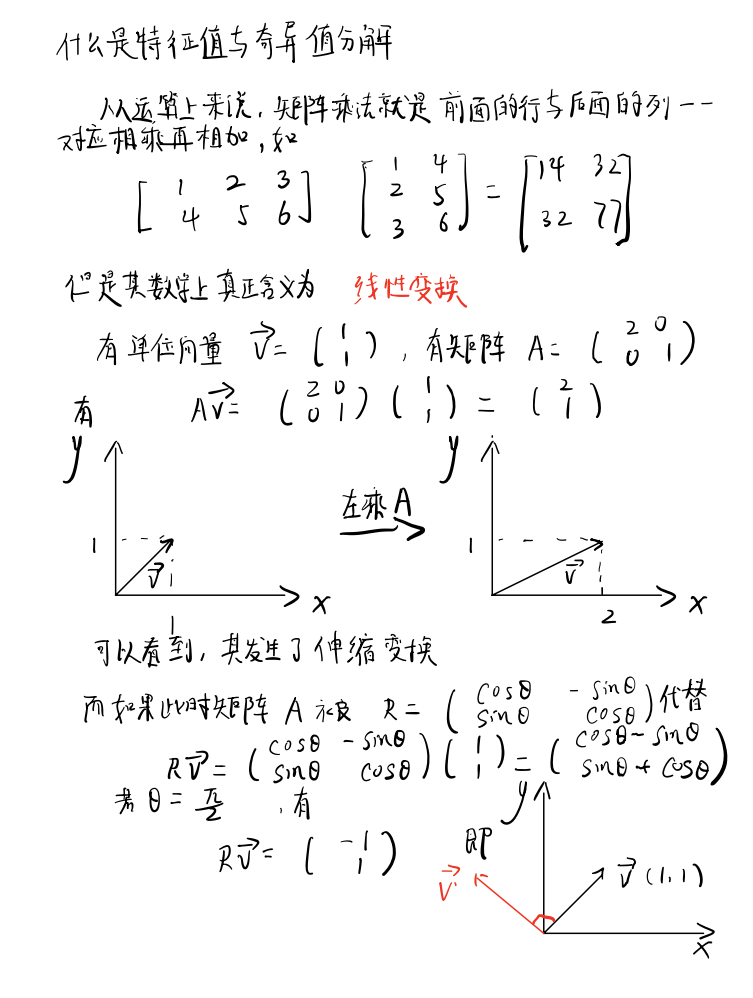 什么是特征值与奇异值分解
从运算上来说，矩阵乘法就是前面的行与后面的列一一
对应相乘再相加，如
[1 2 3 [1 4 = [14 32
4 5 6] 2 5 32 77]
3 6]
但是其数学上真正含义为 线性变换
有单位向量 v⃗= (1 1)，有矩阵 A= (2 0 0 1)
有 Av⃗= (2 0 0 1)(1 1) = (2 1)
y y
左乘A
1 v⃗ 1 v⃗
x x
1 2
可以看到，其发生了伸缩变换
而如果此时矩阵 A 被 R= (cosθ -sinθ sinθ cosθ)代替
Rv⃗= (cosθ -sinθ sinθ cosθ)(1 1)=(cosθ-sinθ sinθ+cosθ)
若 θ= π/2 ，有
Rv⃗= (-1 1) 即
y
v⃗' v⃗(1,1)
x